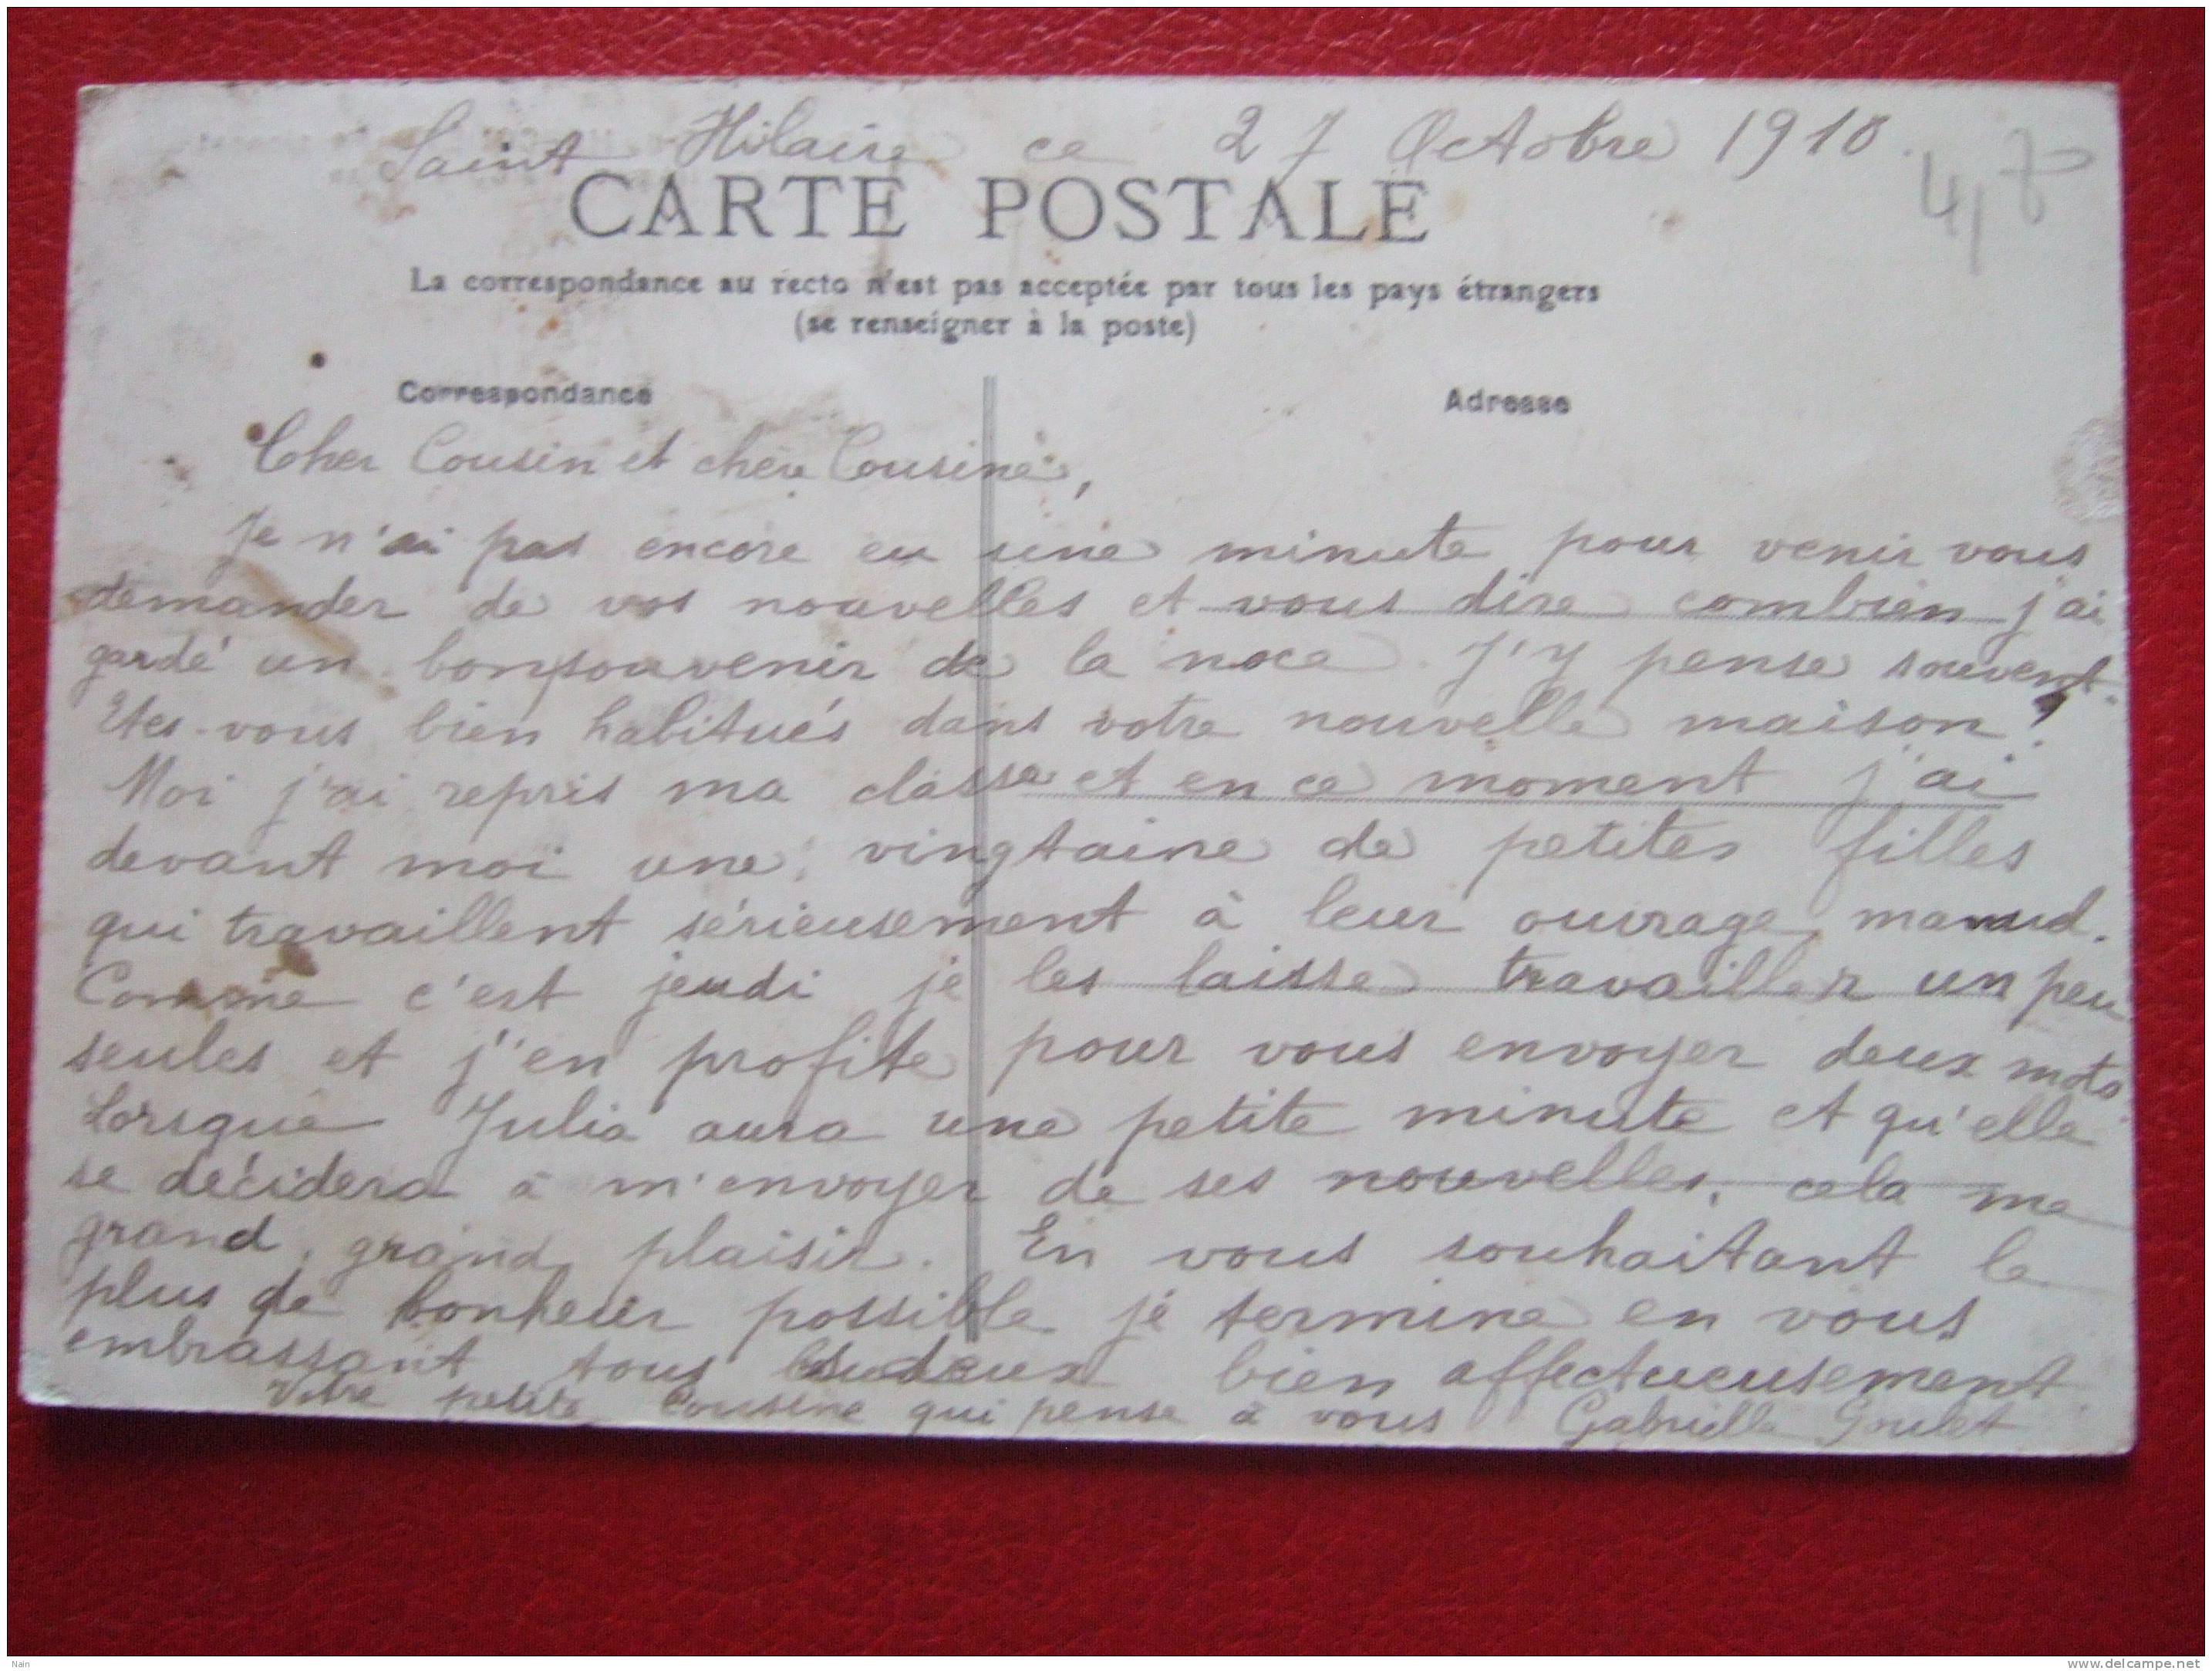 Saint Hilaire ce 27 Octobre 1910.
CARTE POSTALE
La correspondance au recto n'est pas acceptée par tous les pays étrangers
(se renseigner à la poste)
Correspondance
Adresse
Cher Cousin et chère Cousine,
Je n'ai pas encore eu une minute pour venir vous
demander de vos nouvelles et vous dire combien j'ai
gardé un bon souvenir de la noce. J'y pense souvent.
Etes-vous bien habitués dans votre nouvelle maison?
Moi j'ai repris ma classe et en ce moment j'ai
devant moi une vingtaine de petites filles
qui travaillent sérieusement à leur ouvrage manuel.
Comme c'est jeudi je les laisse travailler un peu
seules et j'en profite pour vous envoyer deux mots.
Lorsque Julia aura une petite minute et qu'elle
se décidera à m'envoyer de ses nouvelles, cela me
grand, grand plaisir. En vous souhaitant le
plus de bonheur possible je termine en vous
embrassant tous deux bien affectueusement.
Votre petite Cousine qui pense à vous Gabrielle Goulet
Nain
www.delcampe.net